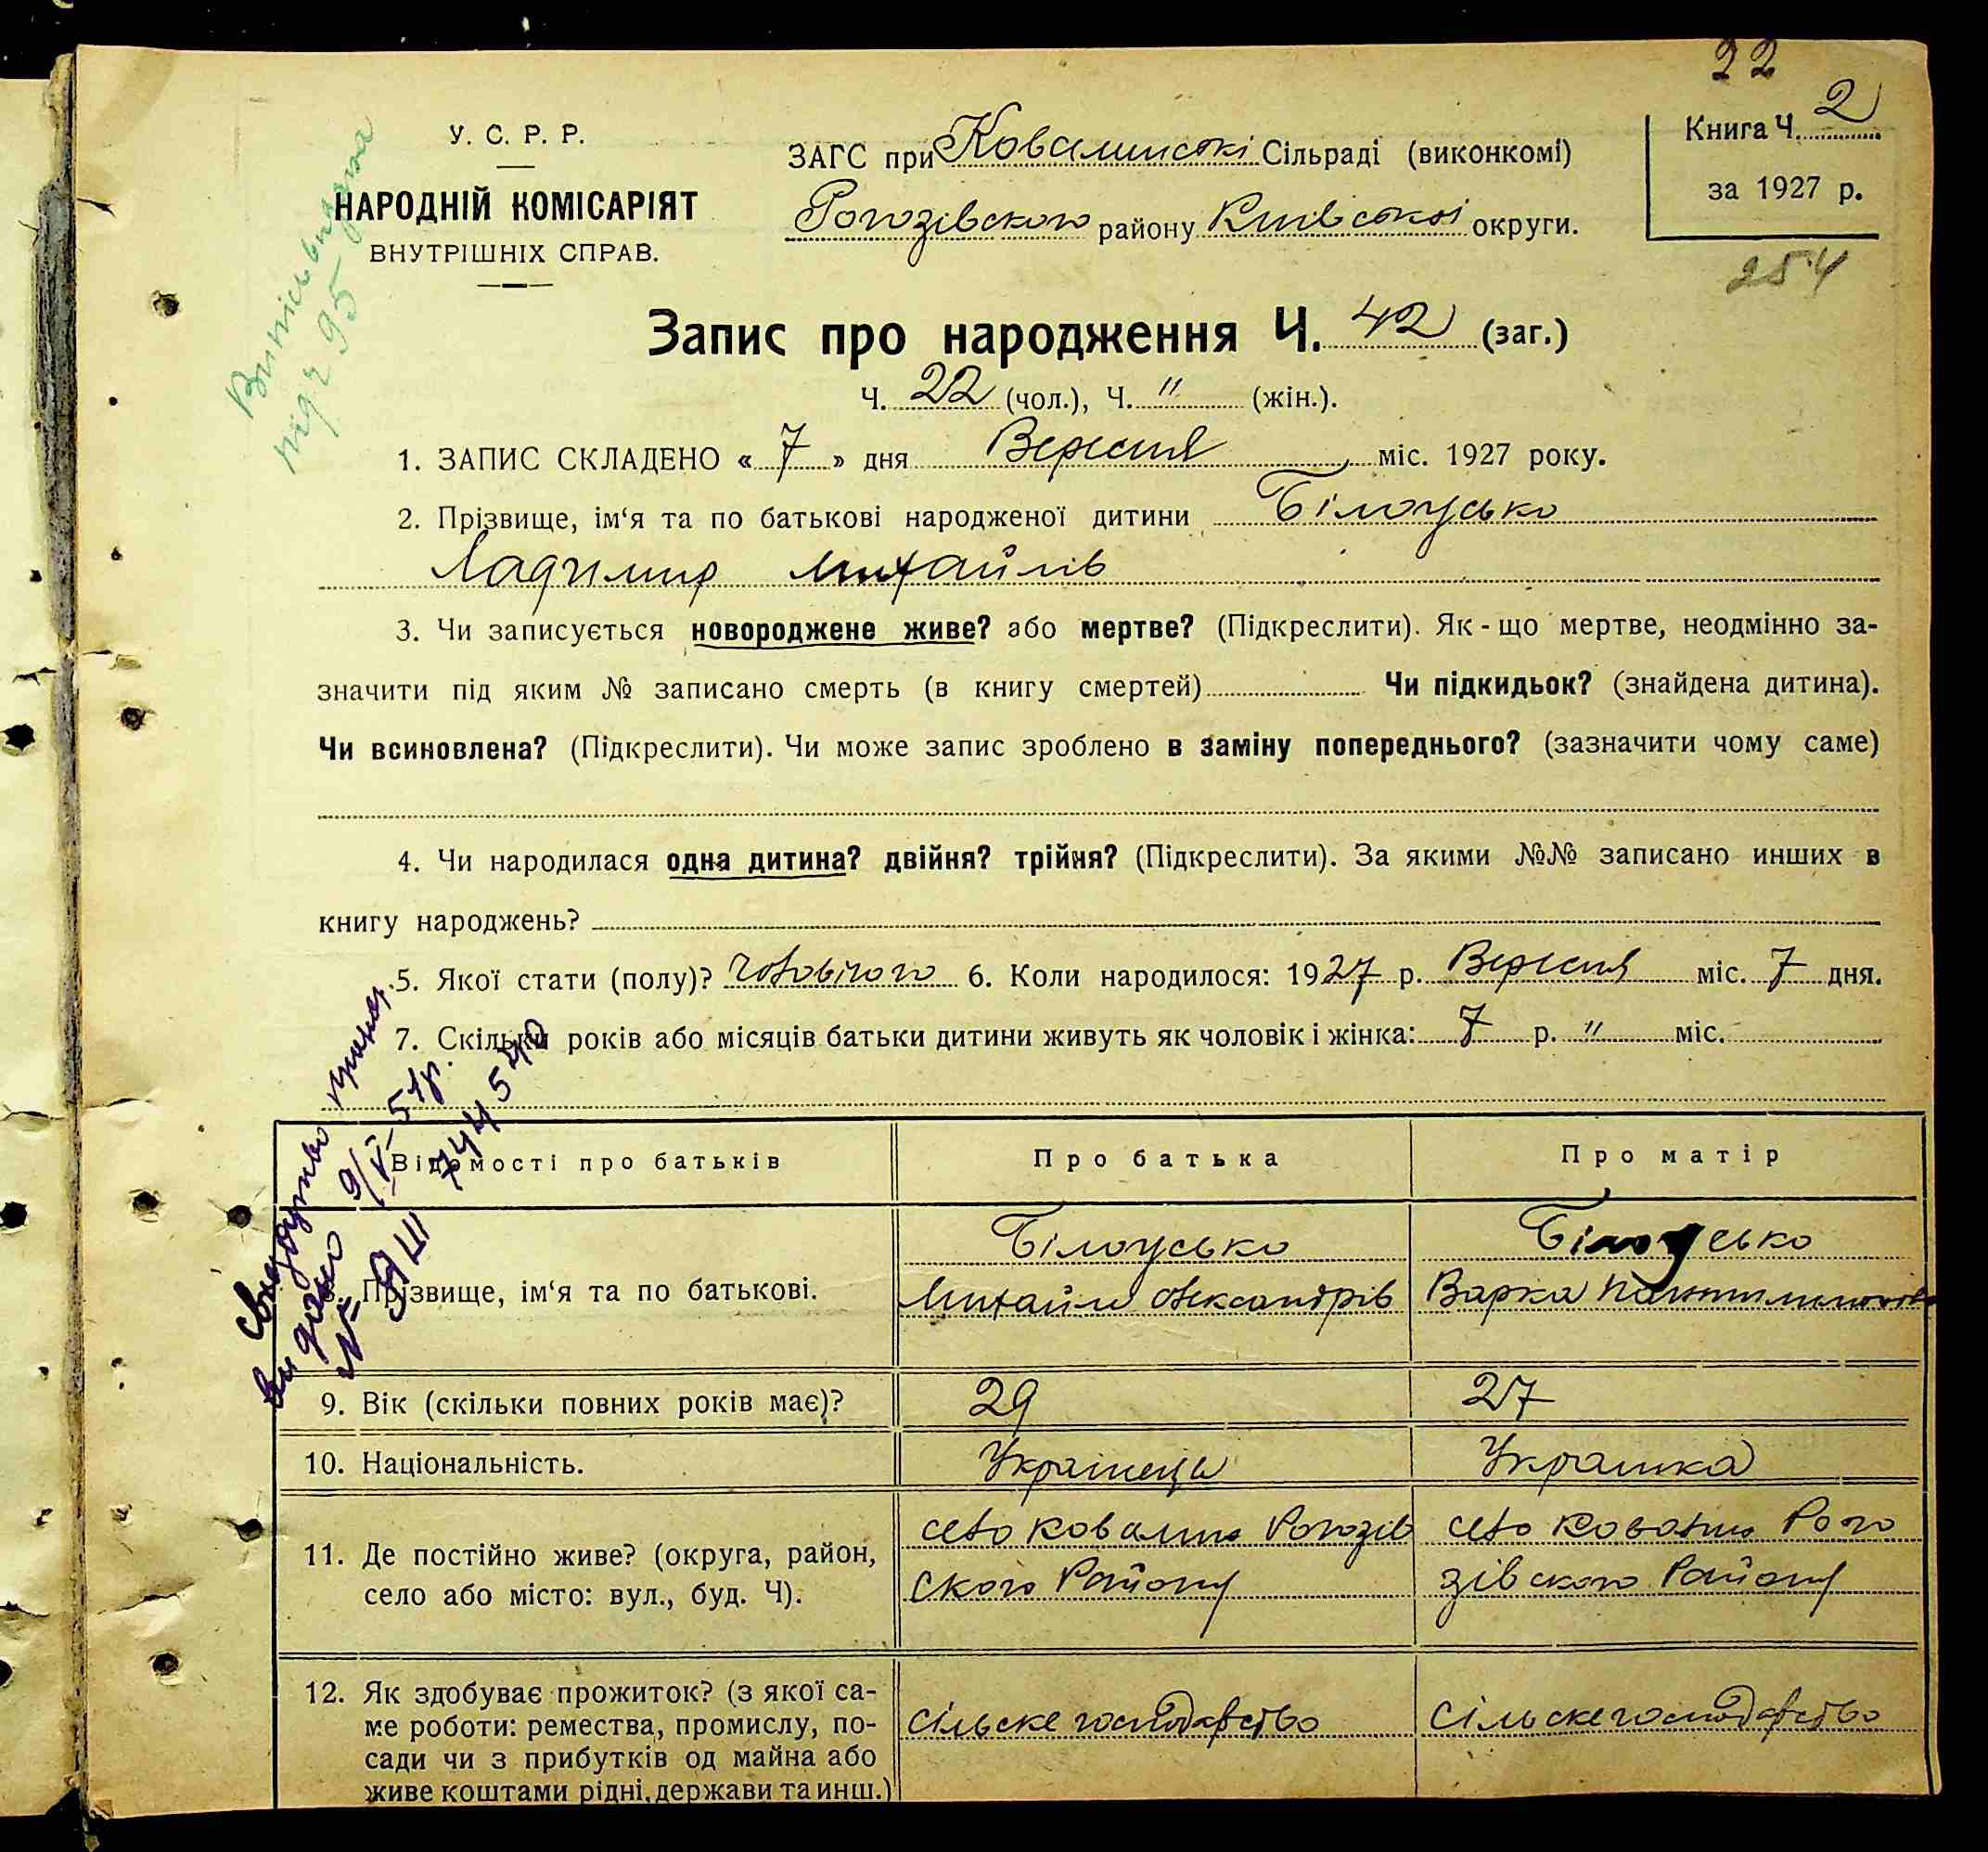 22
У. С. Р. Р.
НАРОДНІЙ КОМІСАРІЯТ
ВНУТРІШНІХ СПРАВ.
ЗАГС при Ковалинські Сільраді (виконкомі)
Рогозівского району Київської округи.
Книга Ч. 2
за 1927 р.
254
Випись видана
під ч 95
Запис про народження Ч. 42 (заг.)
Ч. 22 (чол.), Ч. " (жін.).
1. ЗАПИС СКЛАДЕНО « 7 » дня Вересня міс. 1927 року.
2. Прізвище, ім'я та по батькові народженої дитини Білоусько
Ладимир Михайлів
3. Чи записується новороджене живе? або мертве? (Підкреслити). Як-що мертве, неодмінно за-
значити під яким № записано смерть (в книгу смертей) Чи підкидьок? (знайдена дитина).
Чи всиновлена? (Підкреслити). Чи може запис зроблено в заміну попереднього? (зазначити чому саме)
4. Чи народилася одна дитина? двійня? трійня? (Підкреслити). За якими №№ записано инших в
книгу народжень?
5. Якої стати (полу)? Чоловічого 6. Коли народилося: 1927 р. Вересня міс. 7 дня.
7. Скільки років або місяців батьки дитини живуть як чоловік і жінка: 7 р. " міс.
Свидоцтво
видано 9/V-51р.
№ 744540
Відомості про батьків
Про батька
Про матір
Прізвище, ім'я та по батькові.
Білоусько
Михайло Олександрів
Білоусько
Варка
9. Вік (скільки повних років має)?
29
27
10. Національність.
Українець
Украінка
11. Де постійно живе? (округа, район,
село або місто: вул., буд. Ч).
село Ковалин Рогозів
ского Району
село Ковалин Рого
зівского Району
12. Як здобуває прожиток? (з якої са-
ме роботи: ремества, промислу, по-
сади чи з прибутків од майна або
живе коштами рідні, держави та инш.)
сільске господарство
сільске господарство